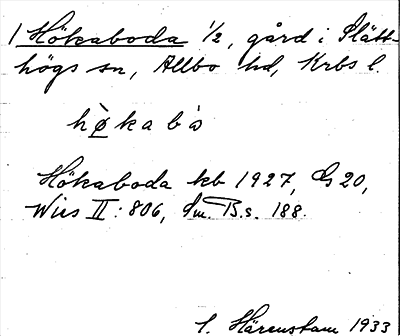 1 Hökaboda 1/2, gård i Slätt-
högs sn, Allbo hd, Krbs l.
hø̀kabò
Hökaboda kb 1927, G 20,
Wies II: 806, Sm. B.s. 188.
S. Härenstam 1933